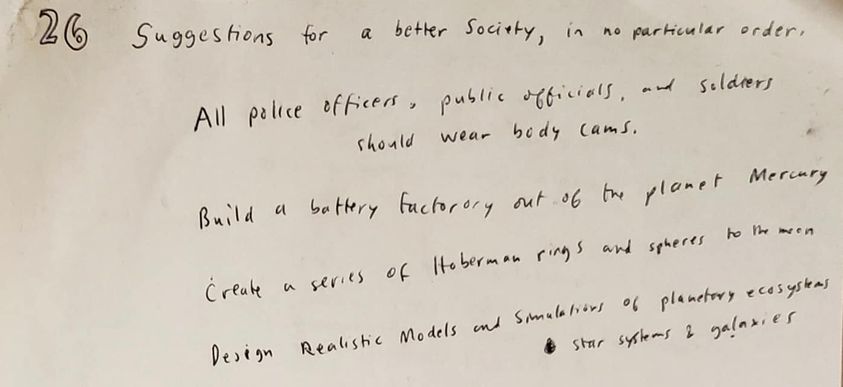 26 Suggestions for a better Society, in no particular order.
All police officers, public officials, and soldiers
should wear body cams.
Build a battery factorory out of the planet Mercury
Create a series of Hoberman rings and spheres to the moon
Design Realistic Models and Simulations of planetary ecosystems
star systems & galaxies